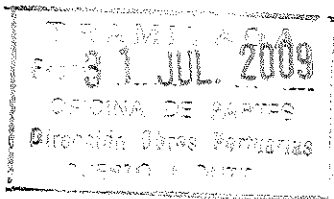 TRAMITASA
31 JUL. 2009
OFICINA DE PARTES
Dirección Obras Portuarias
PUERTO MONTT